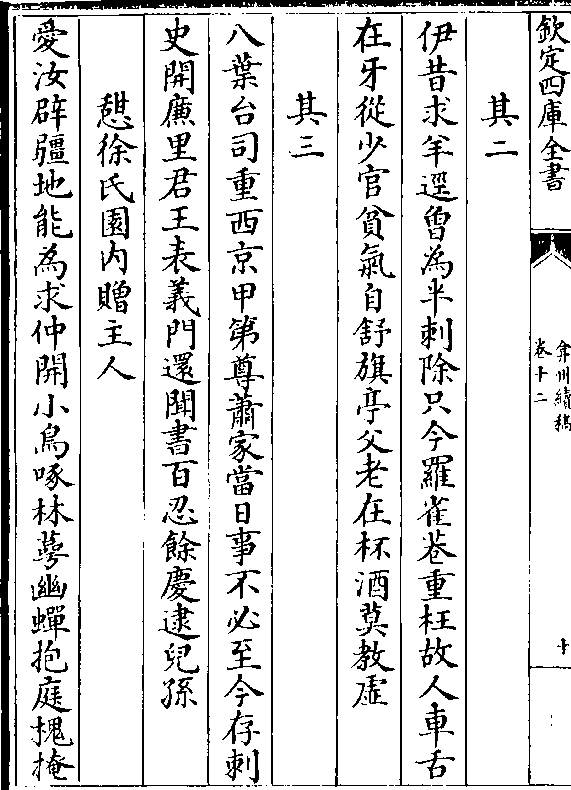 欽定四庫全書
弇州續稿
卷十二
十
其二
伊昔求羊逕曽為半刺除只今羅雀巷重枉故人車舌
在牙從少官貧氣自舒旗亭父老在杯酒莫教虛
其三
八葉台司重西京甲第尊蕭家當日事不必至今存刺
史開㢘里君王表義門還聞書百忍餘慶逮兒孫
憇徐氏園内贈主人
愛汝辟疆地能為求仲開小鳥啄林蕚幽蟬抱庭槐掩